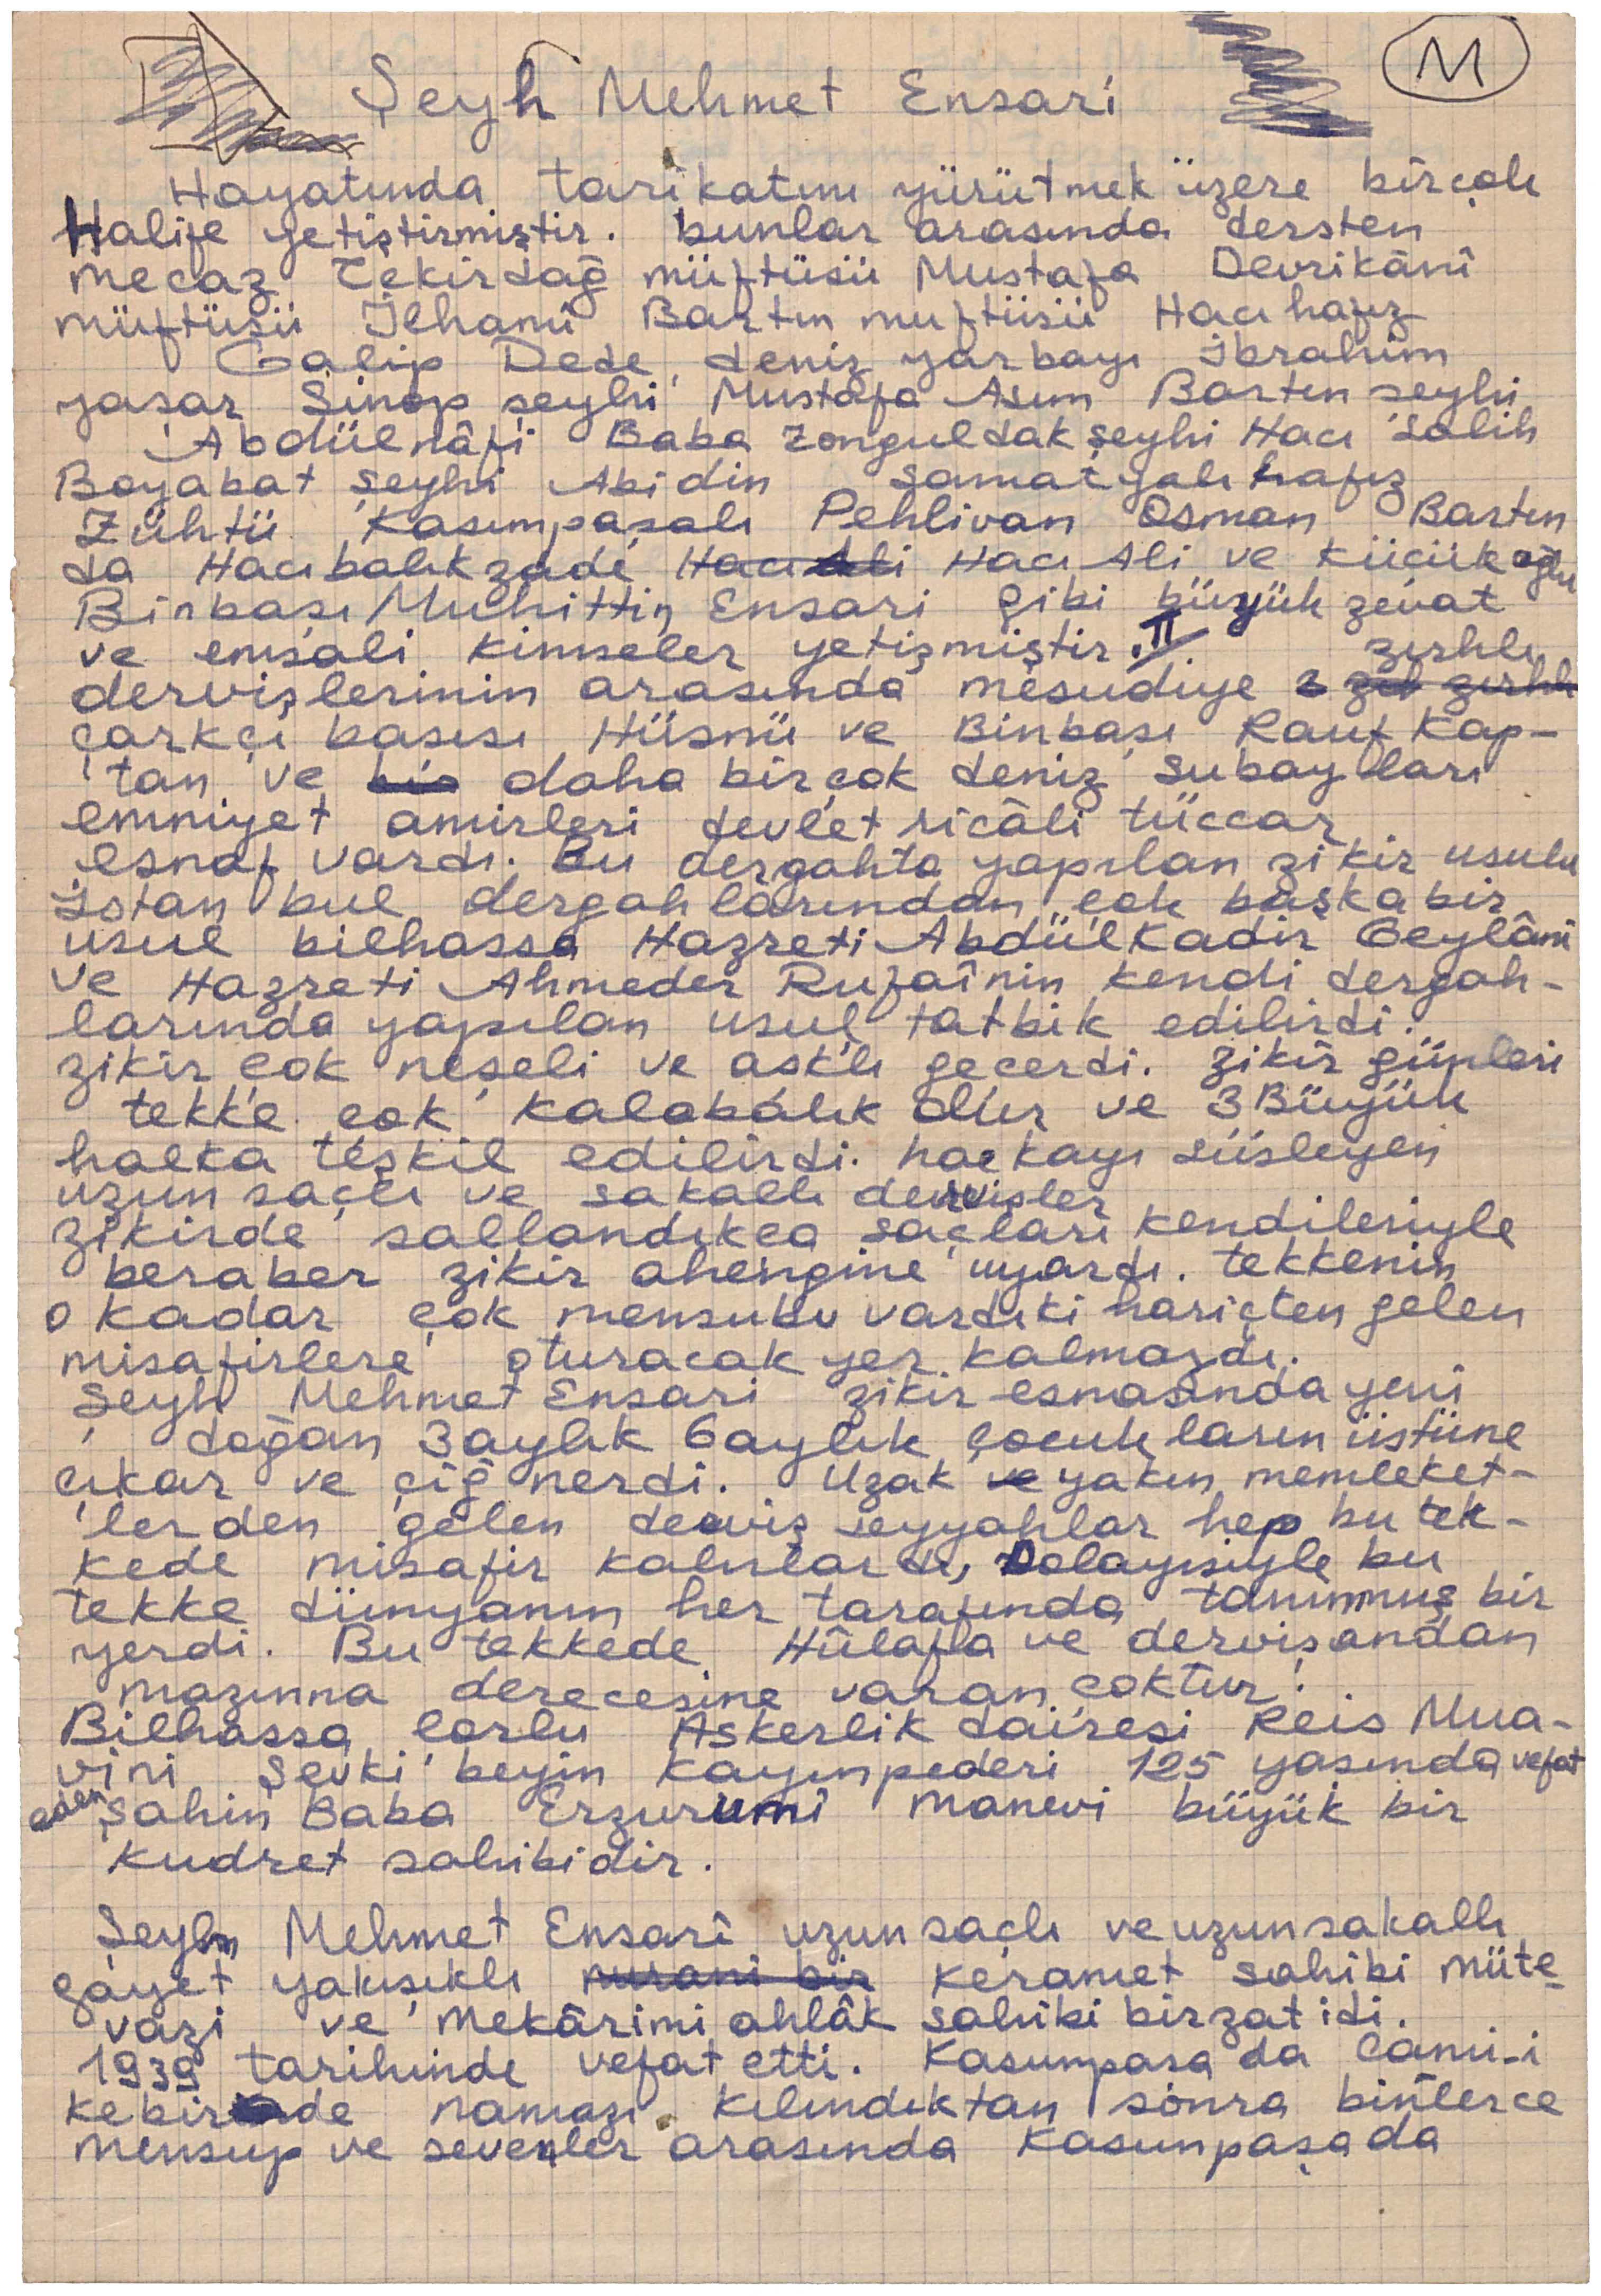 M
Şeyh Mehmet Ensari
Hayatında tarikatını yürütmek üzere birçok
Halife yetiştirmiştir. bunlar arasında dersten
mecaz Tekirdağ müftüsü Mustafa Devrikânî
müftüsü İlhamî Bartın muftüsü Hacı hafız
Galip Dede, deniz yarbayı İbrahim
yaşar Sinop şeyhi Mustafa Asım Bartın şeyhi
Abdülnâfi Baba Zonguldak şeyhi Hacı Salih
Boyabat şeyhi Abidin Samatyalı hafız
Zühtü Kasımpaşalı Pehlivan Osman Bartın
da Hacıbalıkzade Hacı Ali Hacı Ali ve Küçük oğlu
Binbaşı Muhittin Ensari gibi büyük zevat
ve emsali kimseler yetişmiştir. II zırhlı
dervişlerinin arasında mesudiye zırhlı
çarkçı başısı Hüsnü ve Binbaşı Rauf Kap-
tan ve bir daha birçok deniz subayları
emniyet amirleri devlet ricâli tüccar
esnaf vardı. Bu dergahta yapılan zikir usulu
İstanbul dergahlarından çok başka bir
usul bilhassa Hazreti Abdülkadir Geylâni
ve Hazreti Ahmeder Rufaînin kendi dergah-
larında yapılan usul tatbik edilirdi.
zikir çok neşeli ve aşk'lı geçerdi. zikir günleri
tekke çok kalabalık olur ve 3 Büyük
halka teşkil edilirdi. halkayı süsleyen
uzun saçlı ve sakallı dervişler
zikirde sallandıkca saçları kendileriyle
beraber zikir ahengine uyardı. tekkenin
o kadar çok mensubu vardıki hariçten gelen
misafirlere oturacak yer kalmazdı.
Şeyh Mehmet Ensari zikir esnasında yeni
doğan 3 aylık 6 aylık çocukların üstüne
çıkar ve çiğnerdi. Uzak ve yakın memleket-
lerden gelen derviş seyyahlar hep bu tek-
kede misafir kalırlardı, Dolayısiyle bu
tekke dünyanın her tarafında tanınmış bir
yerdi. Bu tekkede Hülafa ve dervişandan
mazınna derecesine varan çoktur.
Bilhassa Çorlu Askerlik dairesi Reis Mua-
vini Şevki beyin kayınpederi 125 yaşında vefat
eden Şahin Baba Erzurumî manevi büyük bir
kudret sahibidir.
Şeyh Mehmet Ensarî uzun saçlı ve uzun sakallı
gayet yakışıklı nurani bir keramet sahibi müte-
vazi ve mekârimi ahlâk sahibi birzat idi.
1939 tarihinde vefat etti. Kasımpaşa da Cami-i
kebirde namazı kılındıktan sonra binlerce
mensup ve sevenler arasında Kasımpaşada